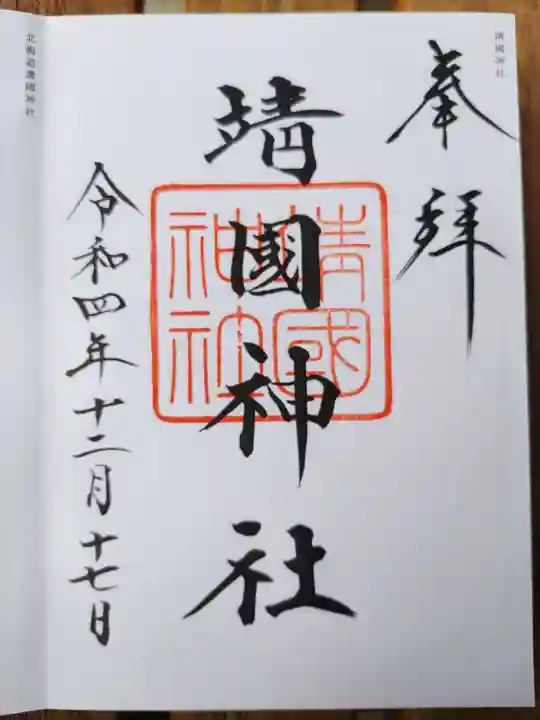 靖國神社
奉拜
靖國神社
靖國神社
令和四年十二月十七日
北海道護國神社